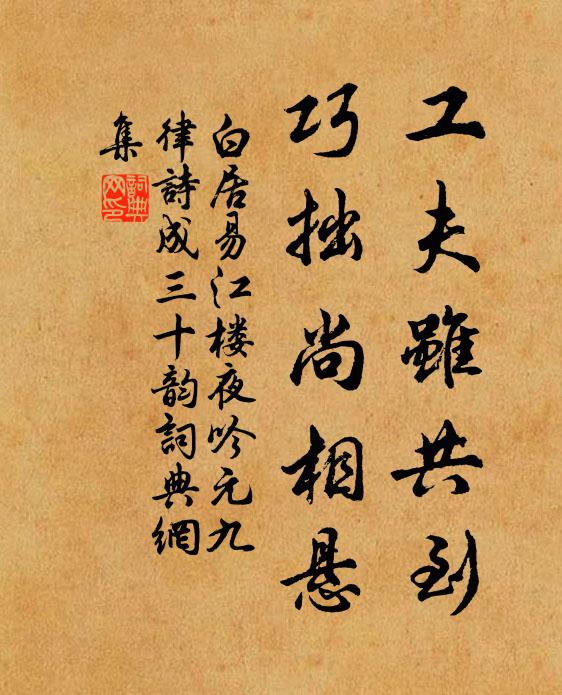 工夫雖共到
巧拙尚相悬
白居易江楼夜吟元九
律詩成三十韵詞典網
集
詞典
网印